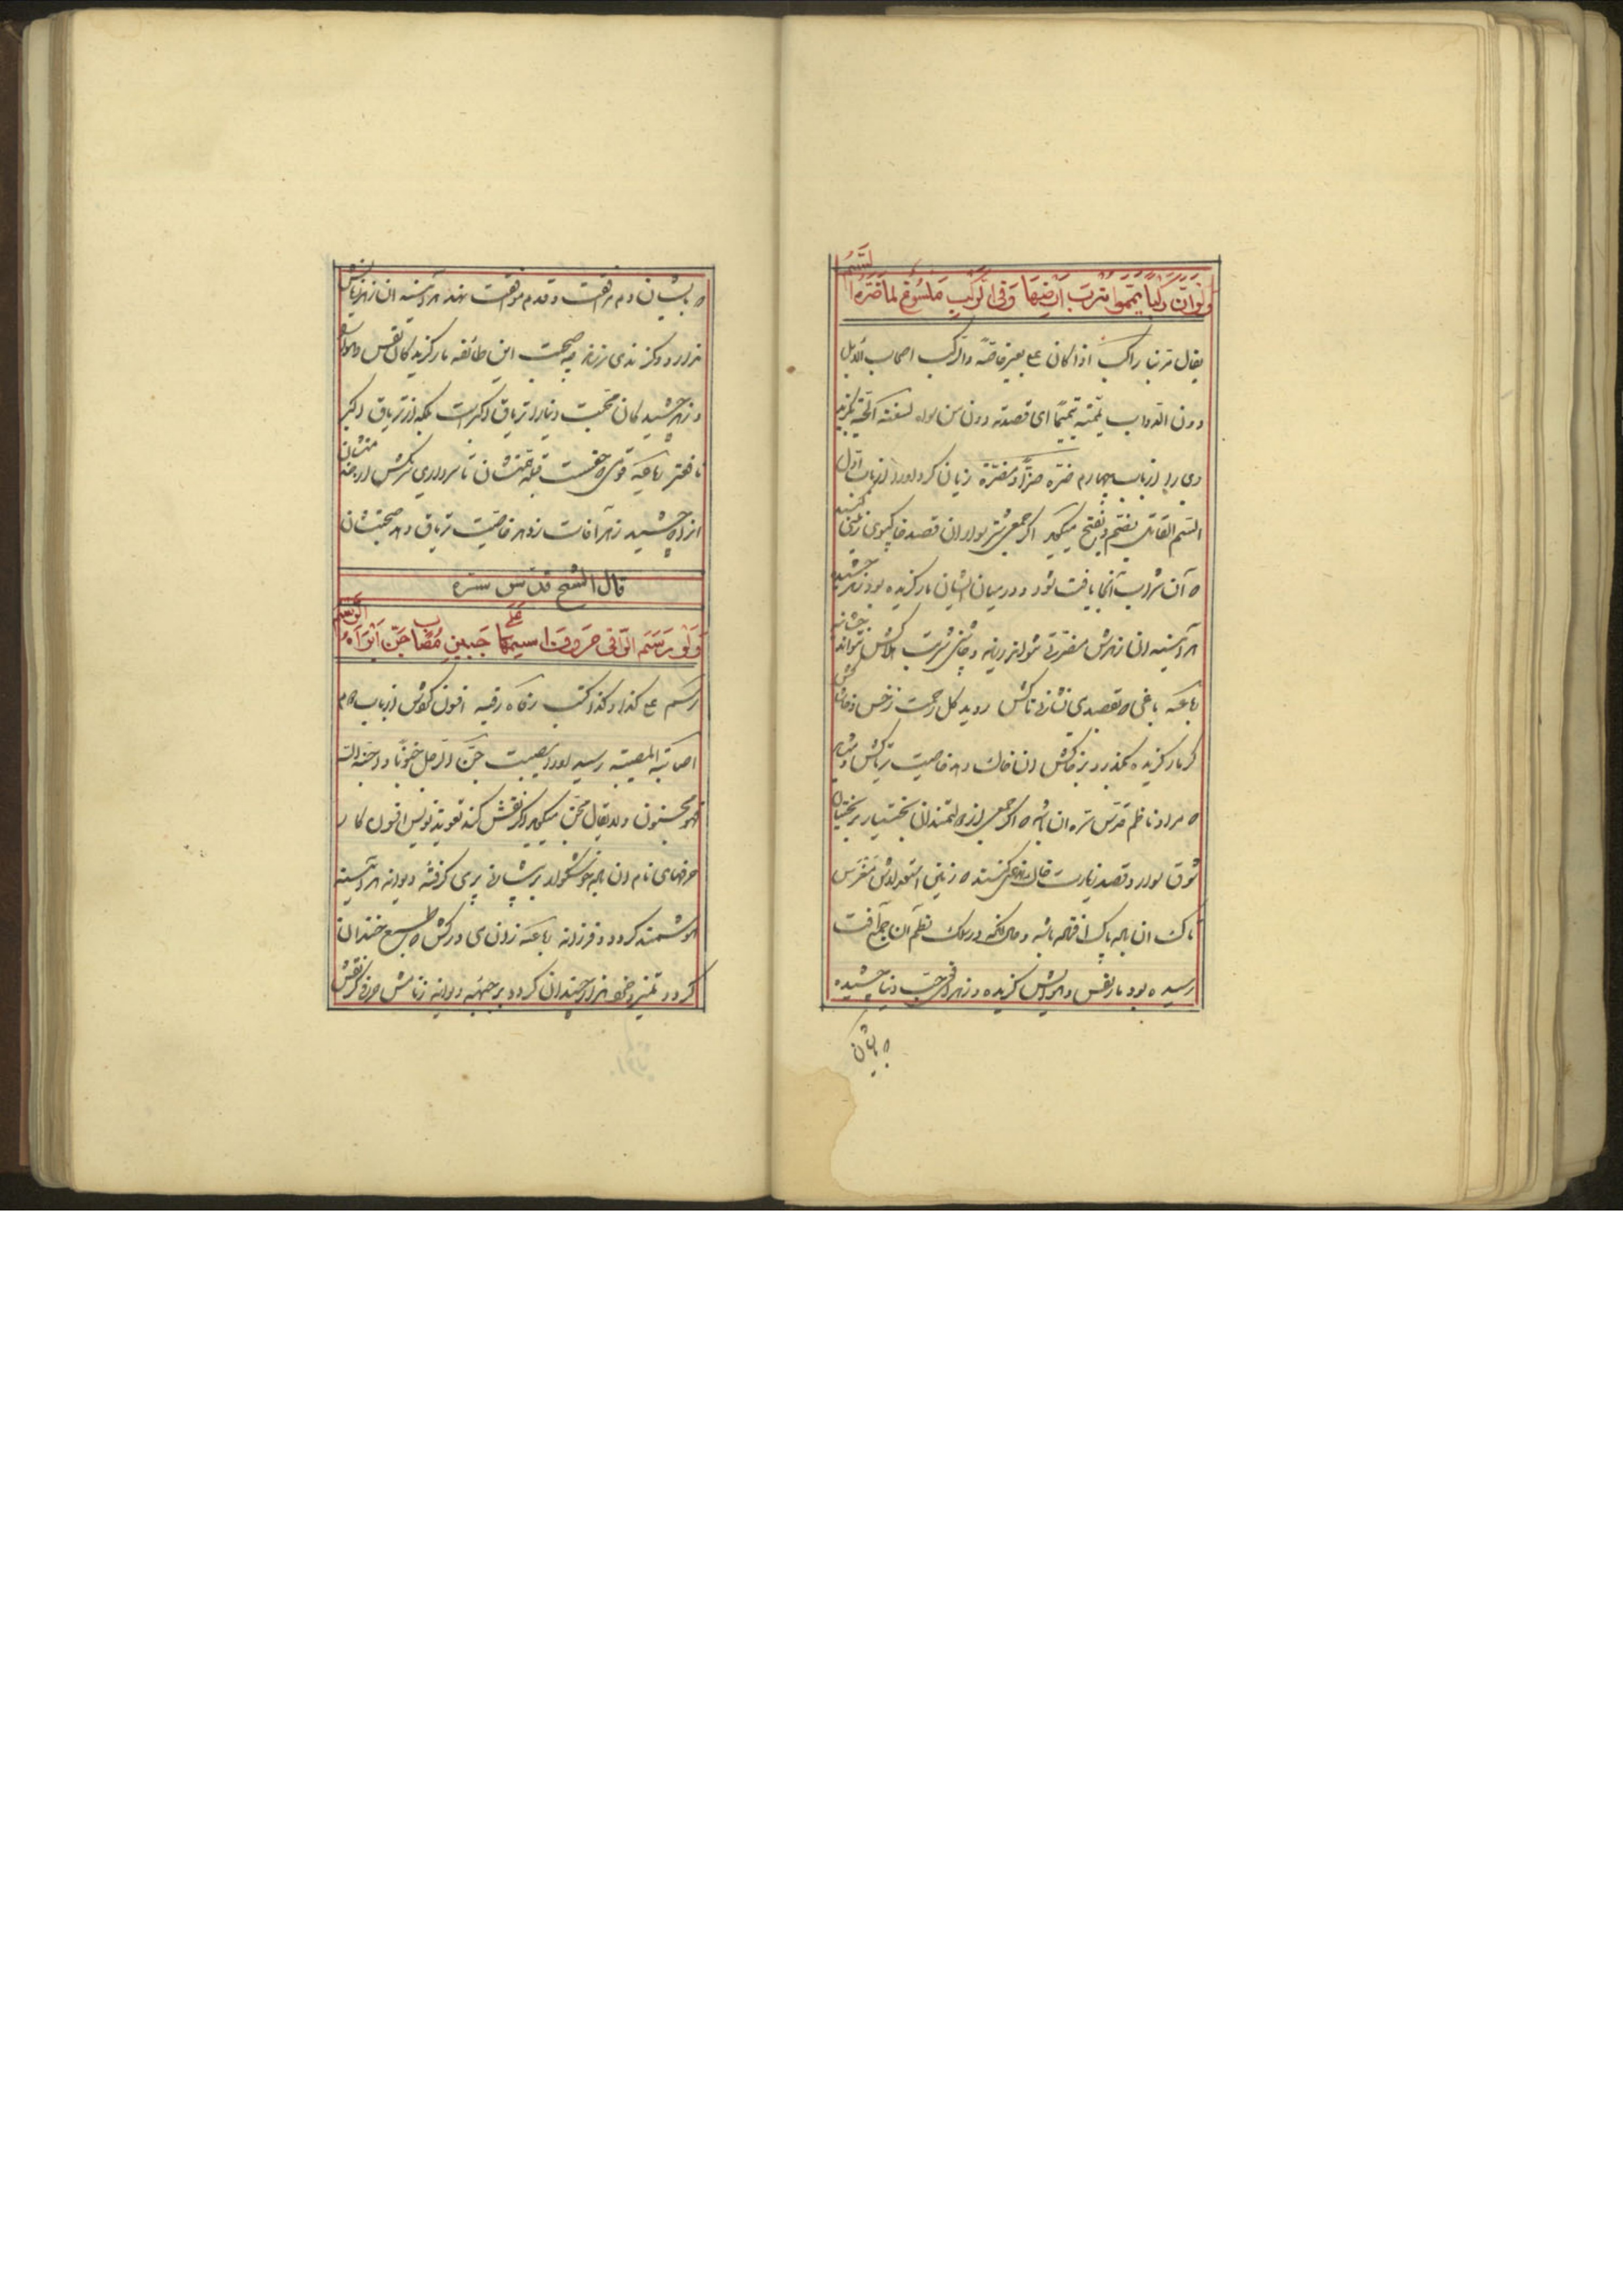 ولو ان ركبا يمموا ترب ارضها وفى الركب ملسوع لما ضره السم
يقال مر بنا راكب اذا كان على بعير خاصة والركب اصحاب الابل
دون الدواب يممته تيميما اى قصدته دون من سواه لسعته الحية بگزید
وى را از باب چهارم ضره ضرا و مضرة زيان كرد او را از باب اول
السم القاتل بضم و بفتح ميگويد اگر جمعى شتر سواران قصد خاكبوى زمينى كنند
كه آن شراب آنجا يافت شود و در ميان ايشان مار گزيده بود زهر چشيده
هر آينه از آن زهرش مضرتى نتواند رسيد و چاشنى شربت هلاكش نتواند چشانيد
رباعيه باغى كه بقصد مى نشانى تاكش رويد گل رحمت ز خس و خاشاكش
گر مار گزيده بگذرد بر خاكش آن خاك دهد خاصيت ترياكش و شايد
كه مراد ناظم قدس سره آن باشد كه اگر جمعى از دولتمندان بختيار بر بختيان
شوق سوار و قصد زيارت خاك كنند كه زمين استعدادش مغرس
تاك آن باده پاك افتاده باشد و حال آنكه در سلك نظم آن جمله آفت
رسيده بود مار نفس و هوايش گزيده و زهر حب دنيا چشيده
بايشان
بايشان دم مرافقت و قدم موافقت نهد هر آينه آن زهر زيانش
ندارد و گزندى نرساند چه صحبت اين طائفه مار گزيدگان نفس و هوا
و زهر چشيدگان محبت دنيا را ترياق اكبر است بلكه از ترياق اكبر
نافعتر رباعيه قومى كه حقست قبله همتشان تا سر دارى سر مكش از خدمتشان
آنرا كه چشيد زهر آفات ز دهر خاصيت ترياق دهد صحبتشان
قال الشيخ قدس سره
ولو رسم الراقى حروف اسمها على جبين مصاب جن ابرأه الرسم
رسم على كذا و كذا كتب رقاه رقية افسون كردش از باب دوم
اصابته المصيبة رسيد او را مصيبت جن الرجل جنونا و اجنه الله
فهو مجنون ولا يقال مجن ميگويد اگر نقش كند تعويذ نويس افسون كار
حرفهاى نام آن باده خوشگوار بر پيشانى پرى گرفته ديوانه هر آينه
هوشمند گردد و فرزانه رباعيه زان مى دركش كه طبع خندان
گردد تمييز و خرد هزار چندان گردد بر جبهه ديوانه ز نامش حرفى گر نقش